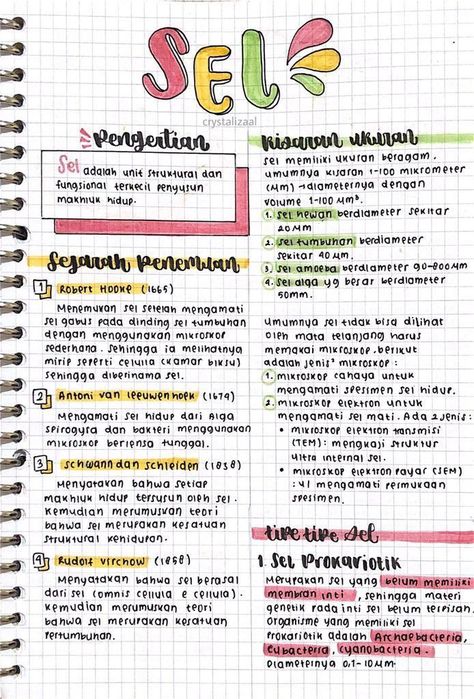 SEL
crystalizaal
Pengertian
Sel adalah unit struktural dan
fungsional terkecil penyusun
makhluk hidup.
Sejarah Penemuan
1 Robert Hooke (1665)
Menemukan sel setelah mengamati
sel gabus pada dinding sel tumbuhan
dengan menggunakan mikroskop
sederhana. Sehingga ia melihatnya
mirip seperti cellula (kamar biksu)
sehingga diberinama sel.
2 Antoni van Leeuwenhoek (1674)
Mengamati sel hidup dari alga
spirogyra dan bakteri menggunakan
mikroskop berlensa tunggal.
3 Schwann dan Schleiden (1838)
Menyatakan bahwa setiap
makhluk hidup tersusun oleh sel.
Kemudian merumuskan teori
bahwa sel merupakan kesatuan
struktural kehidupan.
4 Rudolf Virchow (1858)
Menyatakan bahwa sel berasal
dari sel (omnis cellula e cellula).
Kemudian merumuskan teori
bahwa sel merupakan kesatuan
pertumbuhan.
Kisaran Ukuran
Sel memiliki ukuran beragam,
umumnya kisaran 1-100 mikrometer
(μm) → diameternya dengan
volume 1-100 μm³.
1. Sel hewan berdiameter sekitar
20 μm
2. Sel tumbuhan berdiameter
sekitar 40 μm.
3. Sel amoeba berdiameter 90-800μm
4. Sel alga yg besar berdiameter
50mm.
Umumnya sel tidak bisa dilihat
oleh mata telanjang harus
memakai mikroskop, berikut
adalah jenis² mikroskop:
1. Mikroskop cahaya untuk
mengamati spesimen sel hidup.
2. Mikroskop elektron untuk
mengamati sel mati. Ada 2 jenis:
• Mikroskop elektron transmisi
(TEM): mengkaji struktur
ultra internal sel.
• Mikroskop elektron payar (SEM)
: u/ mengamati permukaan
spesimen.
Tipe Tipe Sel
1. Sel Prokariotik
Merupakan sel yang belum memiliki
membran inti, sehingga materi
genetik pada inti sel belum terpisah.
Organisme yang memiliki sel
prokariotik adalah Archaebacteria,
Eubacteria, Cyanobacteria.
Diameternya 0,1-10μm.